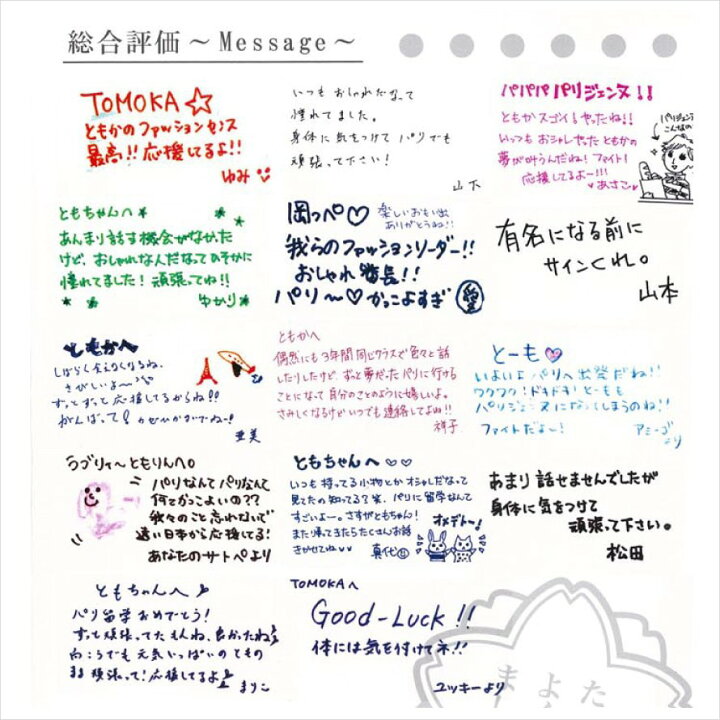 総合評価～Message～
TOMOKA☆
ともかのファッションセンス
最高!!応援してるよ!!
ゆみ
いつも おしゃれだなって
憧れてました。
身体に気をつけて パリでも
頑張って下さい!
山下
パパパパリジェンヌ!!
ともかスゴイ!やったね!!
いっつもおシャレやった ともかの
夢が叶うんだね!ファイト!
応援してるよー!!!
あさこ
パリジェンヌ
こんなの
ともちゃんへ
あんまり話す機会がなかった
けど、おしゃれなんだなってひそかに
憧れてました!頑張ってね!!
ゆかり
岡っぺ♡
楽しいおもい出
ありがとうね!!
我らのファッションリーダー!!
おしゃれ番長!!
パリ～♡かっこよすぎ
愛
有名になる前に
サインくれ。
山本
ともかへ
しばらく会えなくなるね、
さびしいよ～
ずっとずっと応援してるからね!!
がんばって!
亜美
ともかへ
偶然にも3年間同じクラスで色々と話
したりしたけど、ずっと夢だったパリに行ける
ことになって自分のことのように嬉しいよ。
さみしくなるけどいつでも連絡してよね!!
祥子
とーも♡
いよいよ パリへ出発だね!!
ワクワク!ドキドキ!とーもも
パリジェンヌになってしまうのね!!
ファイトだよー!
アミーゴより
ラブリィ～ともりんへ。
パリなんてパリなんて
何てかっこよいの??
我々のこと忘れないで
遠い日本から応援してる!
あなたのサトペより
ともちゃんへ♡♡
いつも持ってる小物とかオシャレだなって
見てたの知ってる?笑。パリに留学なんて
すごいよー。さすがともちん!
また帰ってきたらたくさんお話
きかせてね♡♡
真代
オメデトー!
あまり 話せませんでしたが
身体に気をつけて
頑張って下さい。
松田
ともちゃんへ♪
パリ留学おめでとう!
ずっと頑張ってたもんね、良かったね
向こうでも元気いっぱいのとものまま
頑張って!応援してるよ
まりこ
TOMOKAへ
Good-Luck!!
体には気を付けてネ!!
ユッキーより